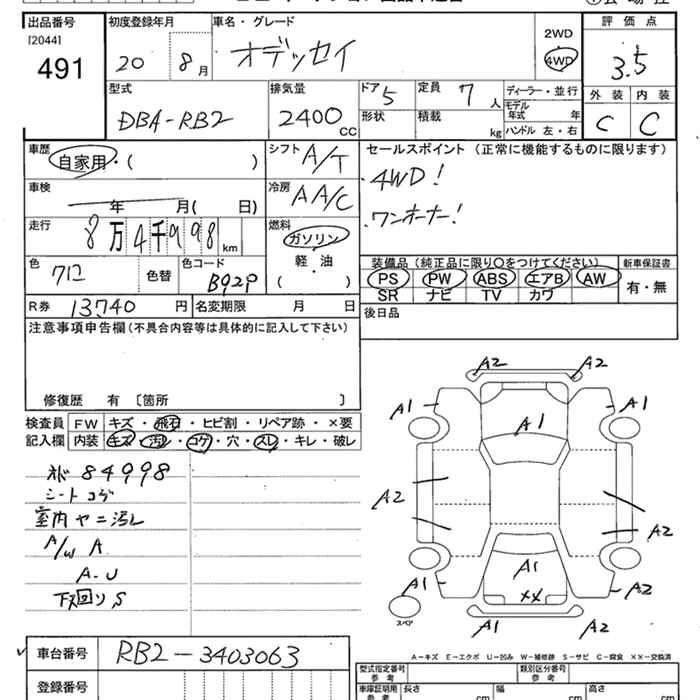 出品番号 初度登録年月 車名・グレード 2WD 評価点
[2044]
491 20 8月 オデッセイ 4WD 3.5
型式 排気量 ドア 5 定員 7人 ディーラー・並行 外装 内装
DBA-RB2 2400CC 形状 積載 kg モデル年式 年 C C
ハンドル 左・右
車歴 シフト A/T セールスポイント (正常に機能するものに限ります)
自家用・( )
4WD!
車検 年 月( 日) 冷房 AA/C
ワンオーナー!
走行 8万4千998km 燃料 ガソリン
軽・油
( )
装備品(純正品に限り○をつけてください) 新車保証書
色 色替 色コード B92P
PS PW ABS エアB AW 有・無
SR ナビ TV カワ
R券 13,740円 名変期限 月 日 後日品
注意事項申告欄(不具合内容等は具体的に記入して下さい)
修復歴 有 〔箇所 〕
検査員 FW キズ・飛石・ヒビ割・リペア跡・×要
記入欄 内装 キズ・汚レ・コゲ・穴・スレ・キレ・破レ
84998
シートコゲ
室内ヤニ汚レ
A/W A
A-U
下廻りS
A2 A2
A1 A1 A1
A2 A2
A1 A1 A2
××
A1 A2
スペア
A-キズ E-エクボ U-凹み W-補修跡 S-サビ C-腐食 ××-交換済
車台番号 RB2-3403063
登録番号
型式指定番号 参考 類別区分番号 参考
車庫証明用 参考 長さ cm 幅 cm 高さ cm